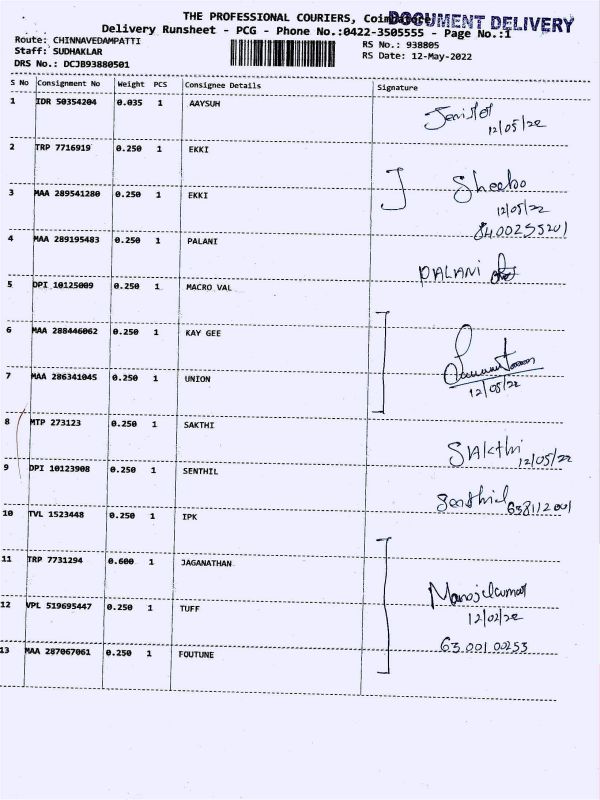 THE PROFESSIONAL COURIERS, Coimbatore
DOCUMENT DELIVERY
Delivery Runsheet - PCG - Phone No.:0422-3505555 - Page No.:1
Route: CHINNAVEDAMPATTI
RS No.: 938805
Staff: SUDHAKLAR
RS Date: 12-May-2022
DRS No.: DCJB93880501
S No Consignment No Weight PCS Consignee Details Signature
1 IDR 50354204 0.035 1 AAYSUH
12/05/22
2 TRP 7716919 0.250 1 EKKI
3 MAA 289541280 0.250 1 EKKI Sheebo
12/05/22
8400255201
4 MAA 289195483 0.250 1 PALANI
PALANI
5 DPI 10125009 0.250 1 MACRO VAL
6 MAA 288446062 0.250 1 KAY GEE
7 MAA 286341045 0.250 1 UNION
12/05/22
8 MTP 273123 0.250 1 SAKTHI
SAkthi 12/05/22
9 DPI 10123908 0.250 1 SENTHIL
Senthil 638112001
10 TVL 1523448 0.250 1 IPK
11 TRP 7731294 0.600 1 JAGANATHAN
Manojkumar
12 VPL 519695447 0.250 1 TUFF
12/02/22
13 MAA 287067061 0.250 1 FOUTUNE
63.001.00253